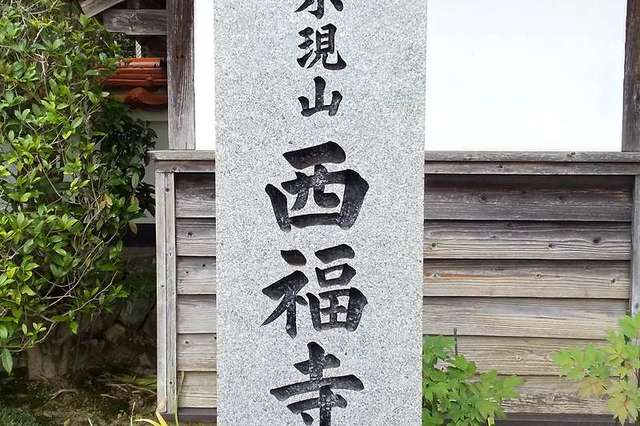 示現山
西福寺